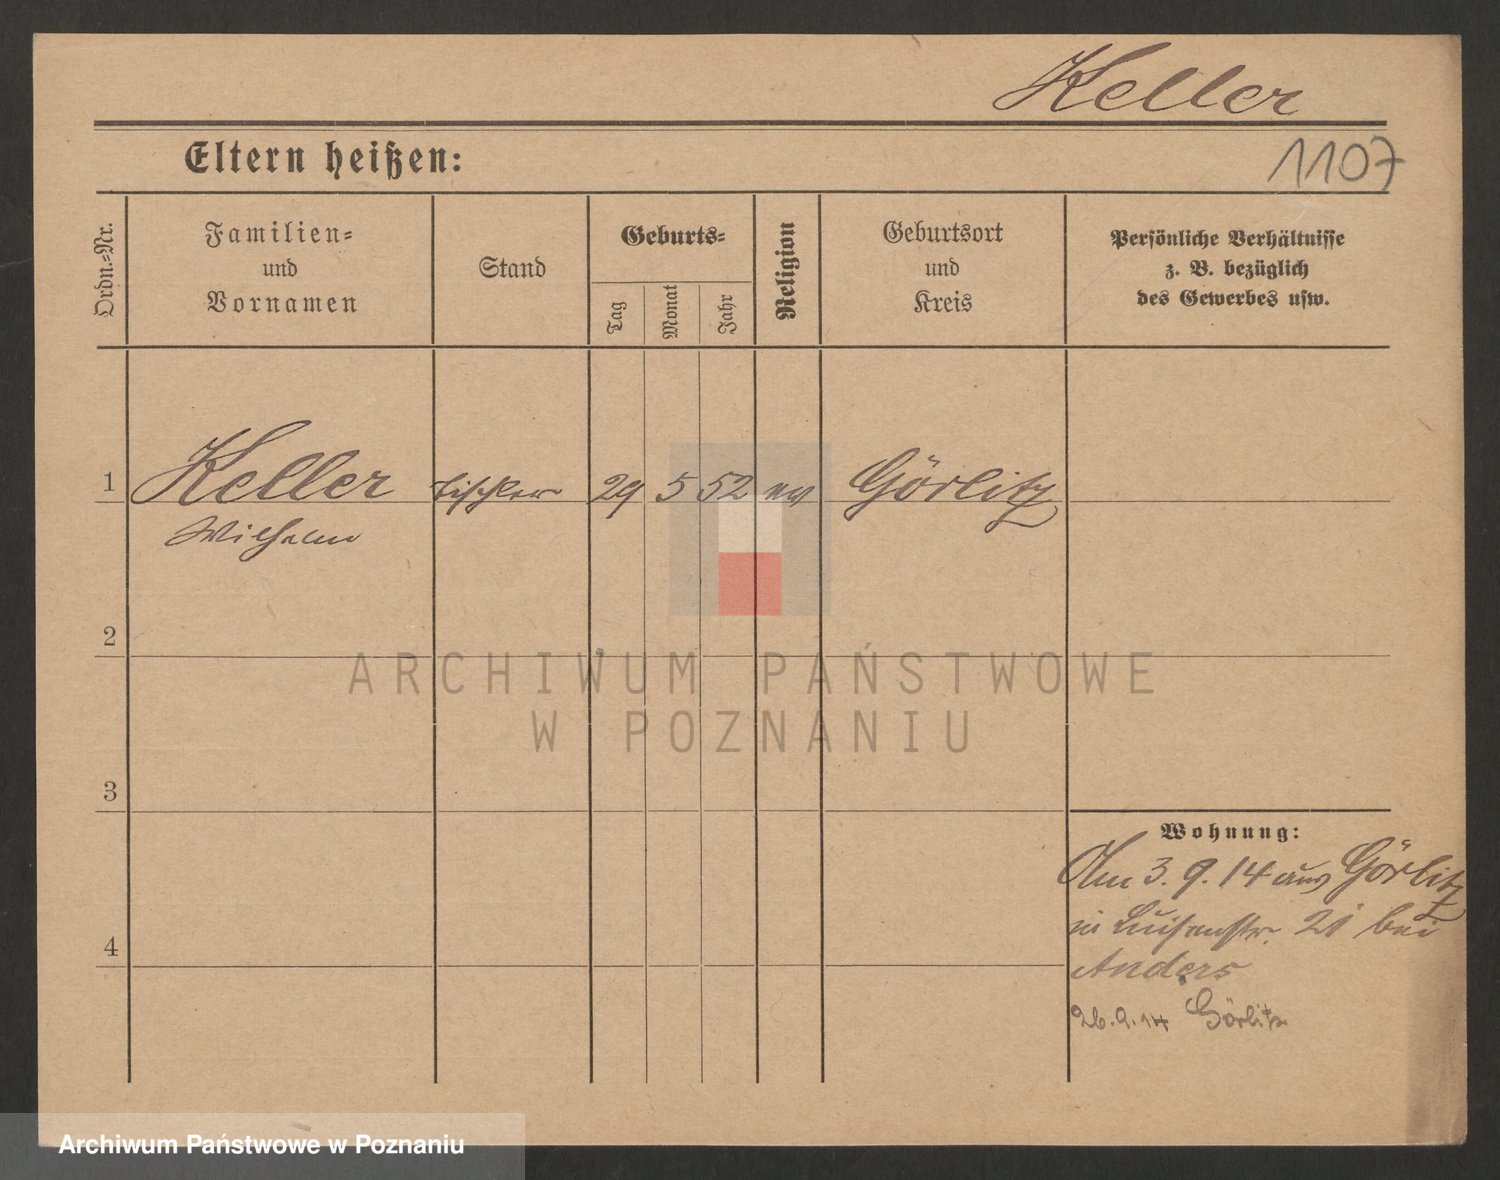 Keller
Eltern heißen:
1107
Ordn.-Nr.
Familien-
und
Vornamen
Stand
Geburts-
Tag
Monat
Jahr
Religion
Geburtsort
und
Kreis
Persönliche Verhältnisse
z. B. bezüglich
des Gewerbes usw.
1 Keller Tischler 29 5 52 ev Görlitz
Wilhelm
2
ARCHIWUM PAŃSTWOWE
W POZNANIU
3
Wohnung:
Am 3. 9. 14 aus Görlitz
in Luisenstr. 21 bei
4
Anders
26.9.14 Görlitz
Archiwum Państwowe w Poznaniu